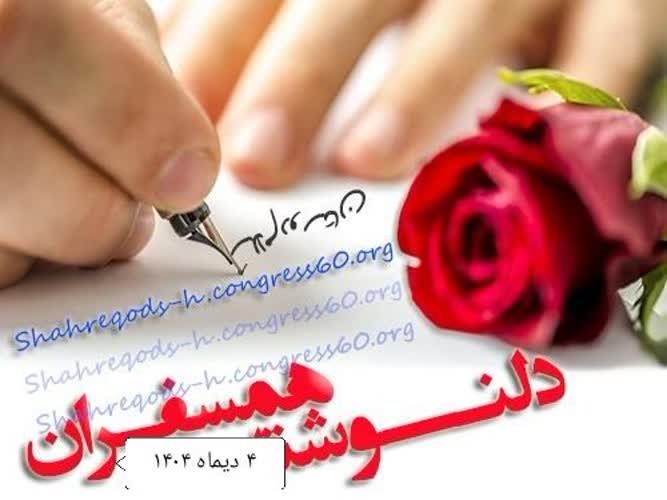 سلام دوستان
Shahreqods-h.congress60.org
Shahreqods-h.congress60.org
Shahreqods-h.congress60.org
دلنوشته همسفران
۴ دیماه ۱۴۰۴